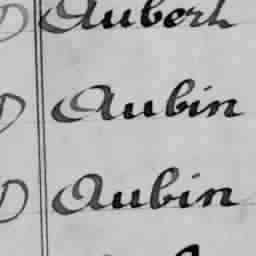 D Aubert
D Aubin
D Aubin